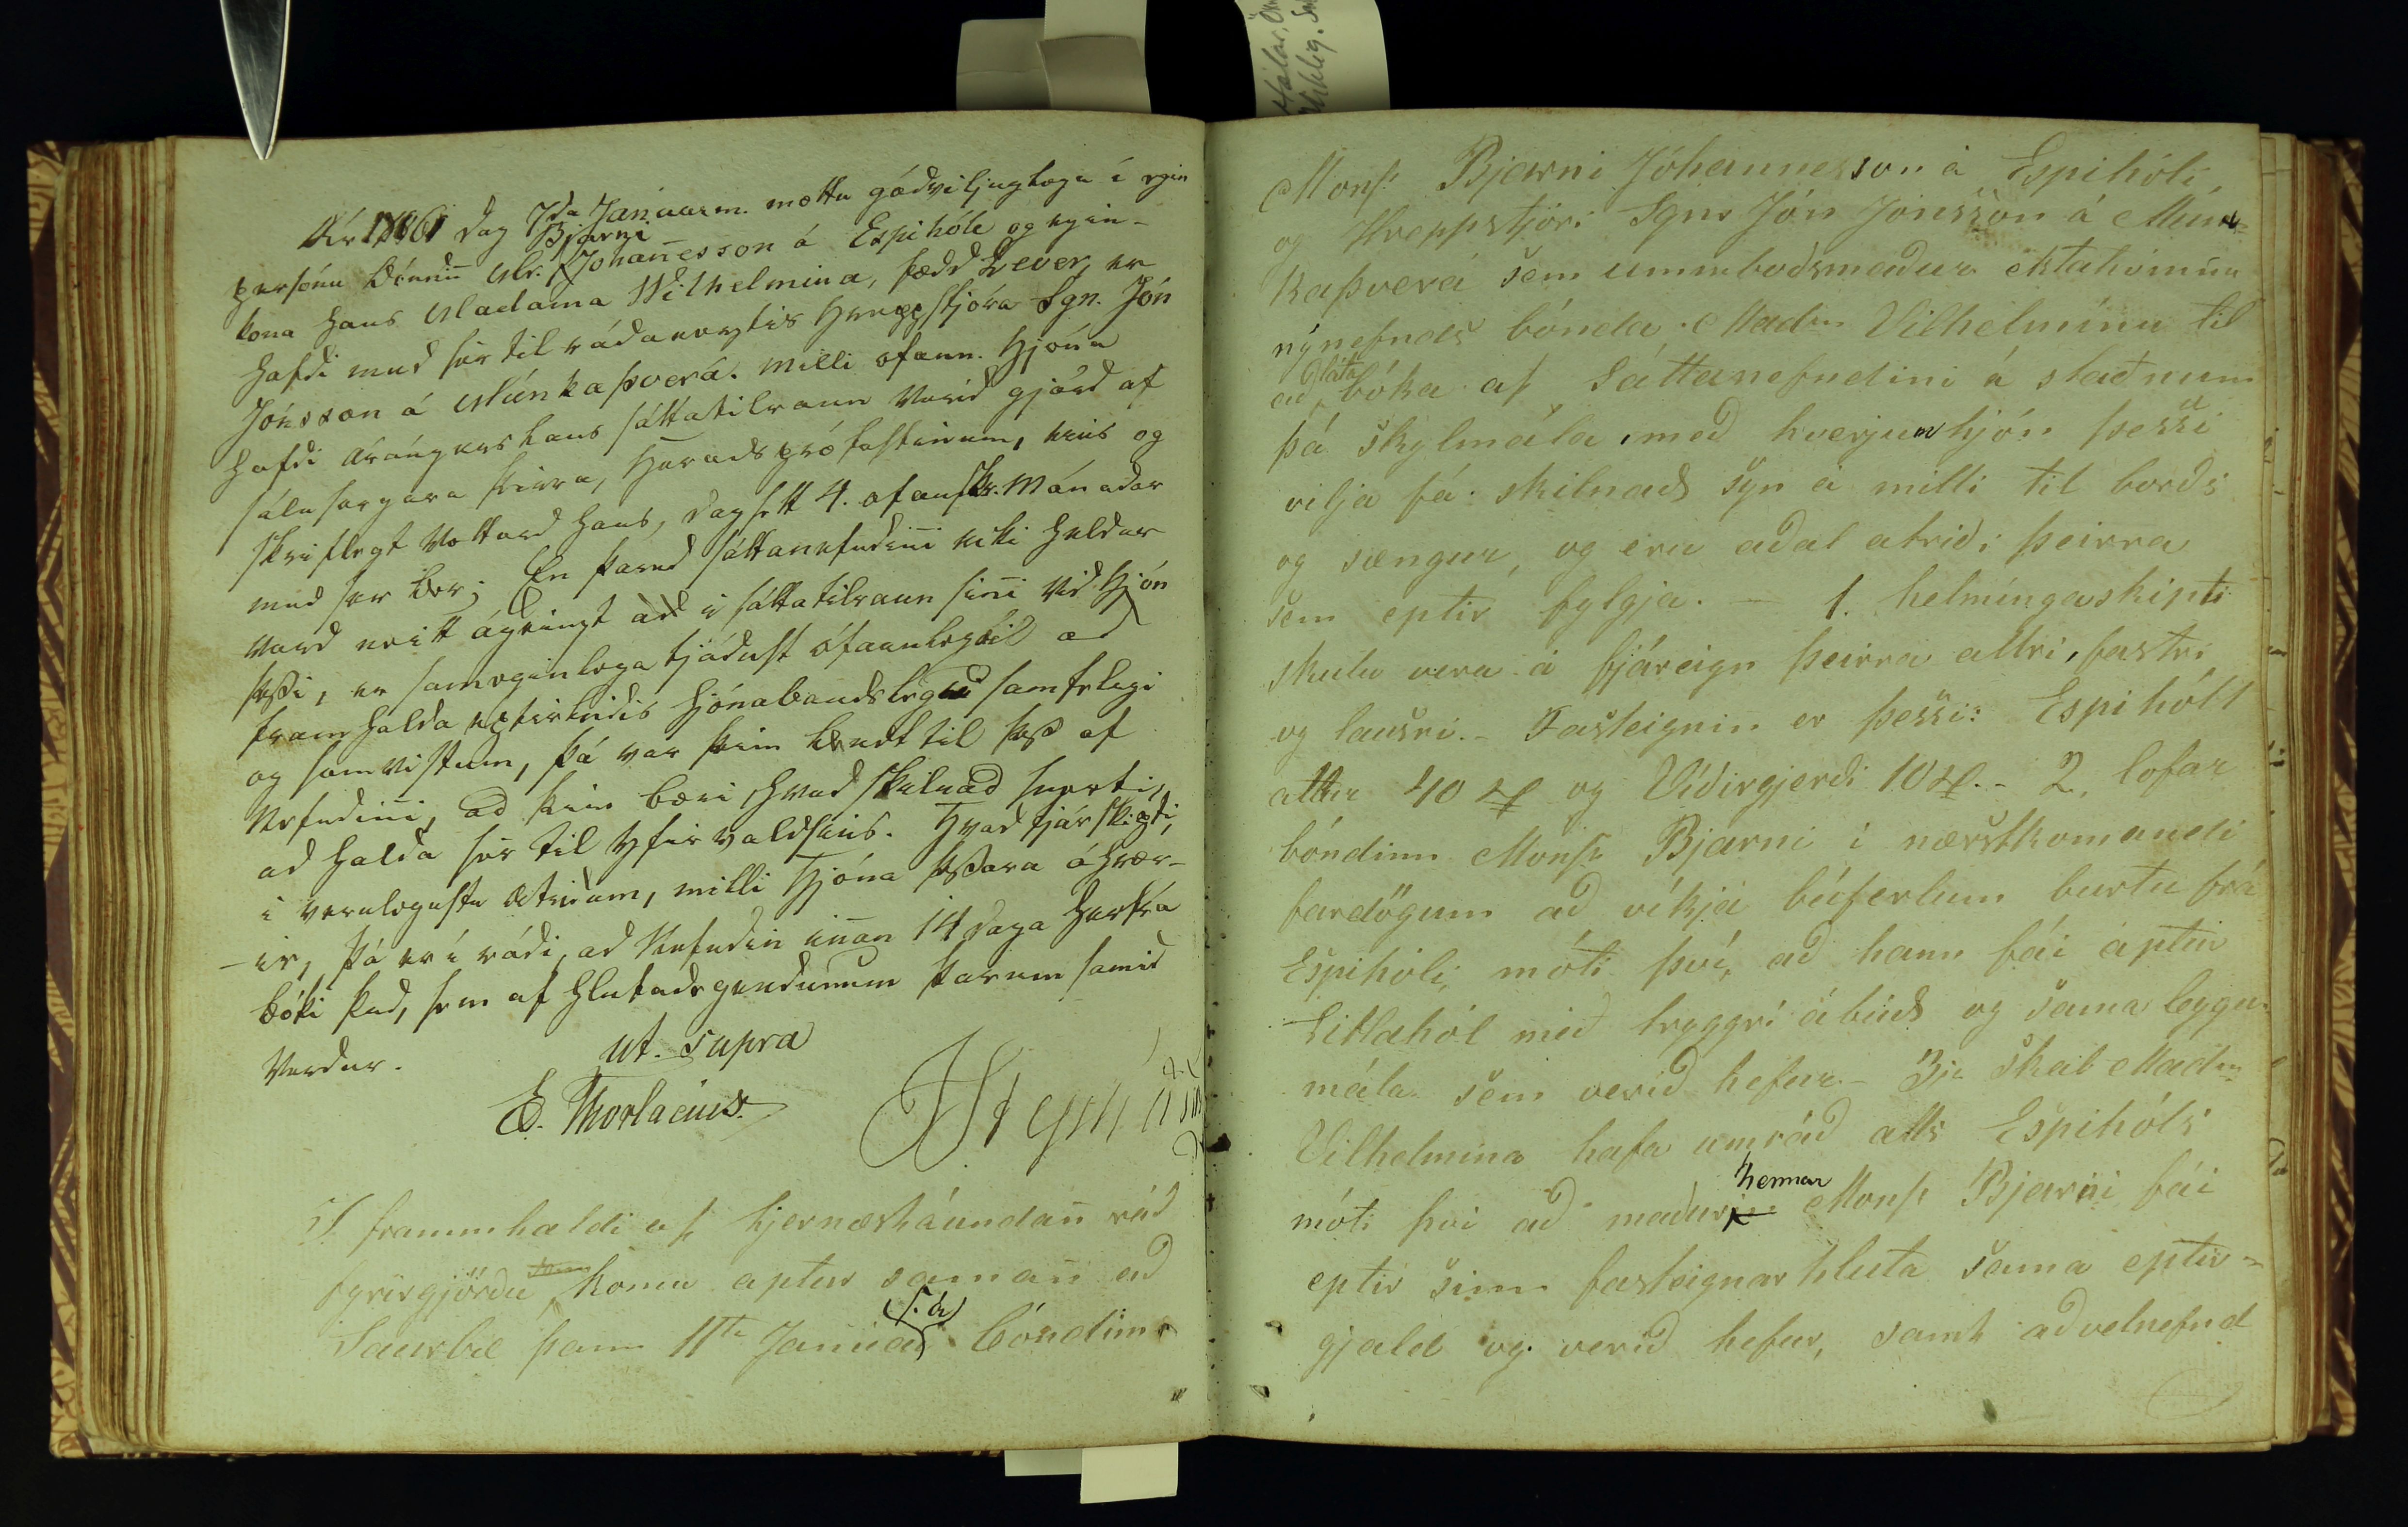 Ár 1861 dag 7da Januarm. mættu góðviljuglega í egin
persónu bóndiñ Mr. Bjarni Johañesson á Espihóle og egin-
kona hans Madama Wilhelmina, fædd Lever, er
hafdi med sér til rádaneytis hreppstjóra Sgn. Jón
Jónsson á Múnkaþverá. Milli ofann. hjóna
hafdi árángurslaus sáttatilraun verid gjörd af
sálusorgara þeirra, Heradsprófastinum, eins og
skriflegt vottord hans, dagsett 4. ofanskr. mánadar
med sér ber; En þared sáttanefndiñi ecki heldur
vard neitt ágengt í sáttatilraun siñi vid hjón
þessi, er sameginlega tjádust ófáanleg til ad
framhalda eptirleidis hjónabandslegu samfelagi
og samvistum, þá var þeim bendt til þess af
Nefndiñi, ad þeim bæri, hvad skilnad snerti,
ad halda sér til yfirvaldsins. Hvad fjárskipti,
i verulegustu atridum, milli hjóna þessara áhrær-
-ir, þá er í rádi, ad Nefndin iñan 14 daga herfrá
bóki þad, sem af hlutadegendunum þarum samid
verdur.
ut supra
E. Thorlacius.
I frammhaldi af hjernæstáundañ ráð
fyrirgjörðu, komu aptur samañ að
Saurbæ þann 11ta Januar (s. á) bóndinn
Monsr Bjarni Jóhannesson á Espihóli,
og Hreppstjóri Sgnr Jón Jónsson á Mun-
kaþverá sem ummboðsmaður ektahvinnu
nýnefnds bónda, Madm Vilhelmínu til
að láta bóka af Sáttanefndini á staðnum
þá skylmála, með hverjum hjón þessi
vilja fá skilnað sýn á milli til borðs
og sængur, og eru aðal atriði þeirra
sem eptir fylgja. — 1. helmíngaskipti
skulu vera á fjáreign þeirra allri, fastri
og lausri. - Fasteignin er þessi: Espihóll
allur 40 # og Víðirgjerði 10 #. - 2, lofar
bóndinn Monsr Bjarni í næstkomandi
fardögum að víkja búferlum burtu frá
Espihóli, móti því, að hann fái aptur
Litlahól með tryggri ábúð og sama leygu-
mála sem verið hefur. - 3ja Skal Madm
Vilhelmina hafa umráð alls Espihóls
móti því að maður hennar Monsr Bjarni fái
eptir sinn fasteignar hluta sama eptir-
gjald og verið hefur, samt að velnefnd